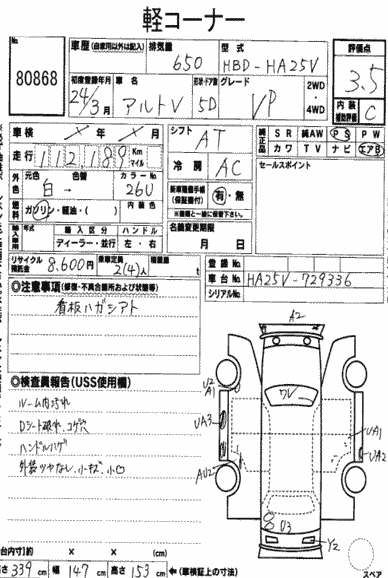 軽コーナー
No. 80868
車歴 (自家用以外は記入) 排気量 650 型式 HBD-HA25V 評価点 3.5
初度登録年月 24/3月 車名 アルトV 形状・ドア数 5D グレード VP 2WD・4WD 内装補助評価 C
車検 × 年 × 月 シフト AT 純正品 SR 純AW PS PW
カワ TV ナビ エアB
走行 112,189 Km マイル 冷房 AC セールスポイント
外色 元色 白 → 色替 カラーNo. 26U 新車整備手帳(保証書付) 有・無
燃料 ガソリン・軽油・( ) 内装色 ※書類と一緒に保管下さい。
輸入車用 輸入区分 ハンドル 名義変更期限
年式 ディーラー・並行 左・右 月 日
リサイクル預託金 8,600円 乗車定員 2(4)人 積載量 t 登録No.
車台No. HA25V-729336
シリアルNo.
◎注意事項(修復・不具合箇所および状態等)
看板ハガシアト
◎検査員報告(USS使用欄)
ルーム内汚れ
Dシート破れ、コゲ穴
ハンドルハゲ
外装ツヤなし、小キズ、小凹
A2
U2
A1
UA3
AU2
UA1
UA2
D3
Y2
スペア
(荷台内寸)約 × × (cm)
長さ 339 cm 幅 147 cm 高さ 153 cm ←(車検証上の寸法)